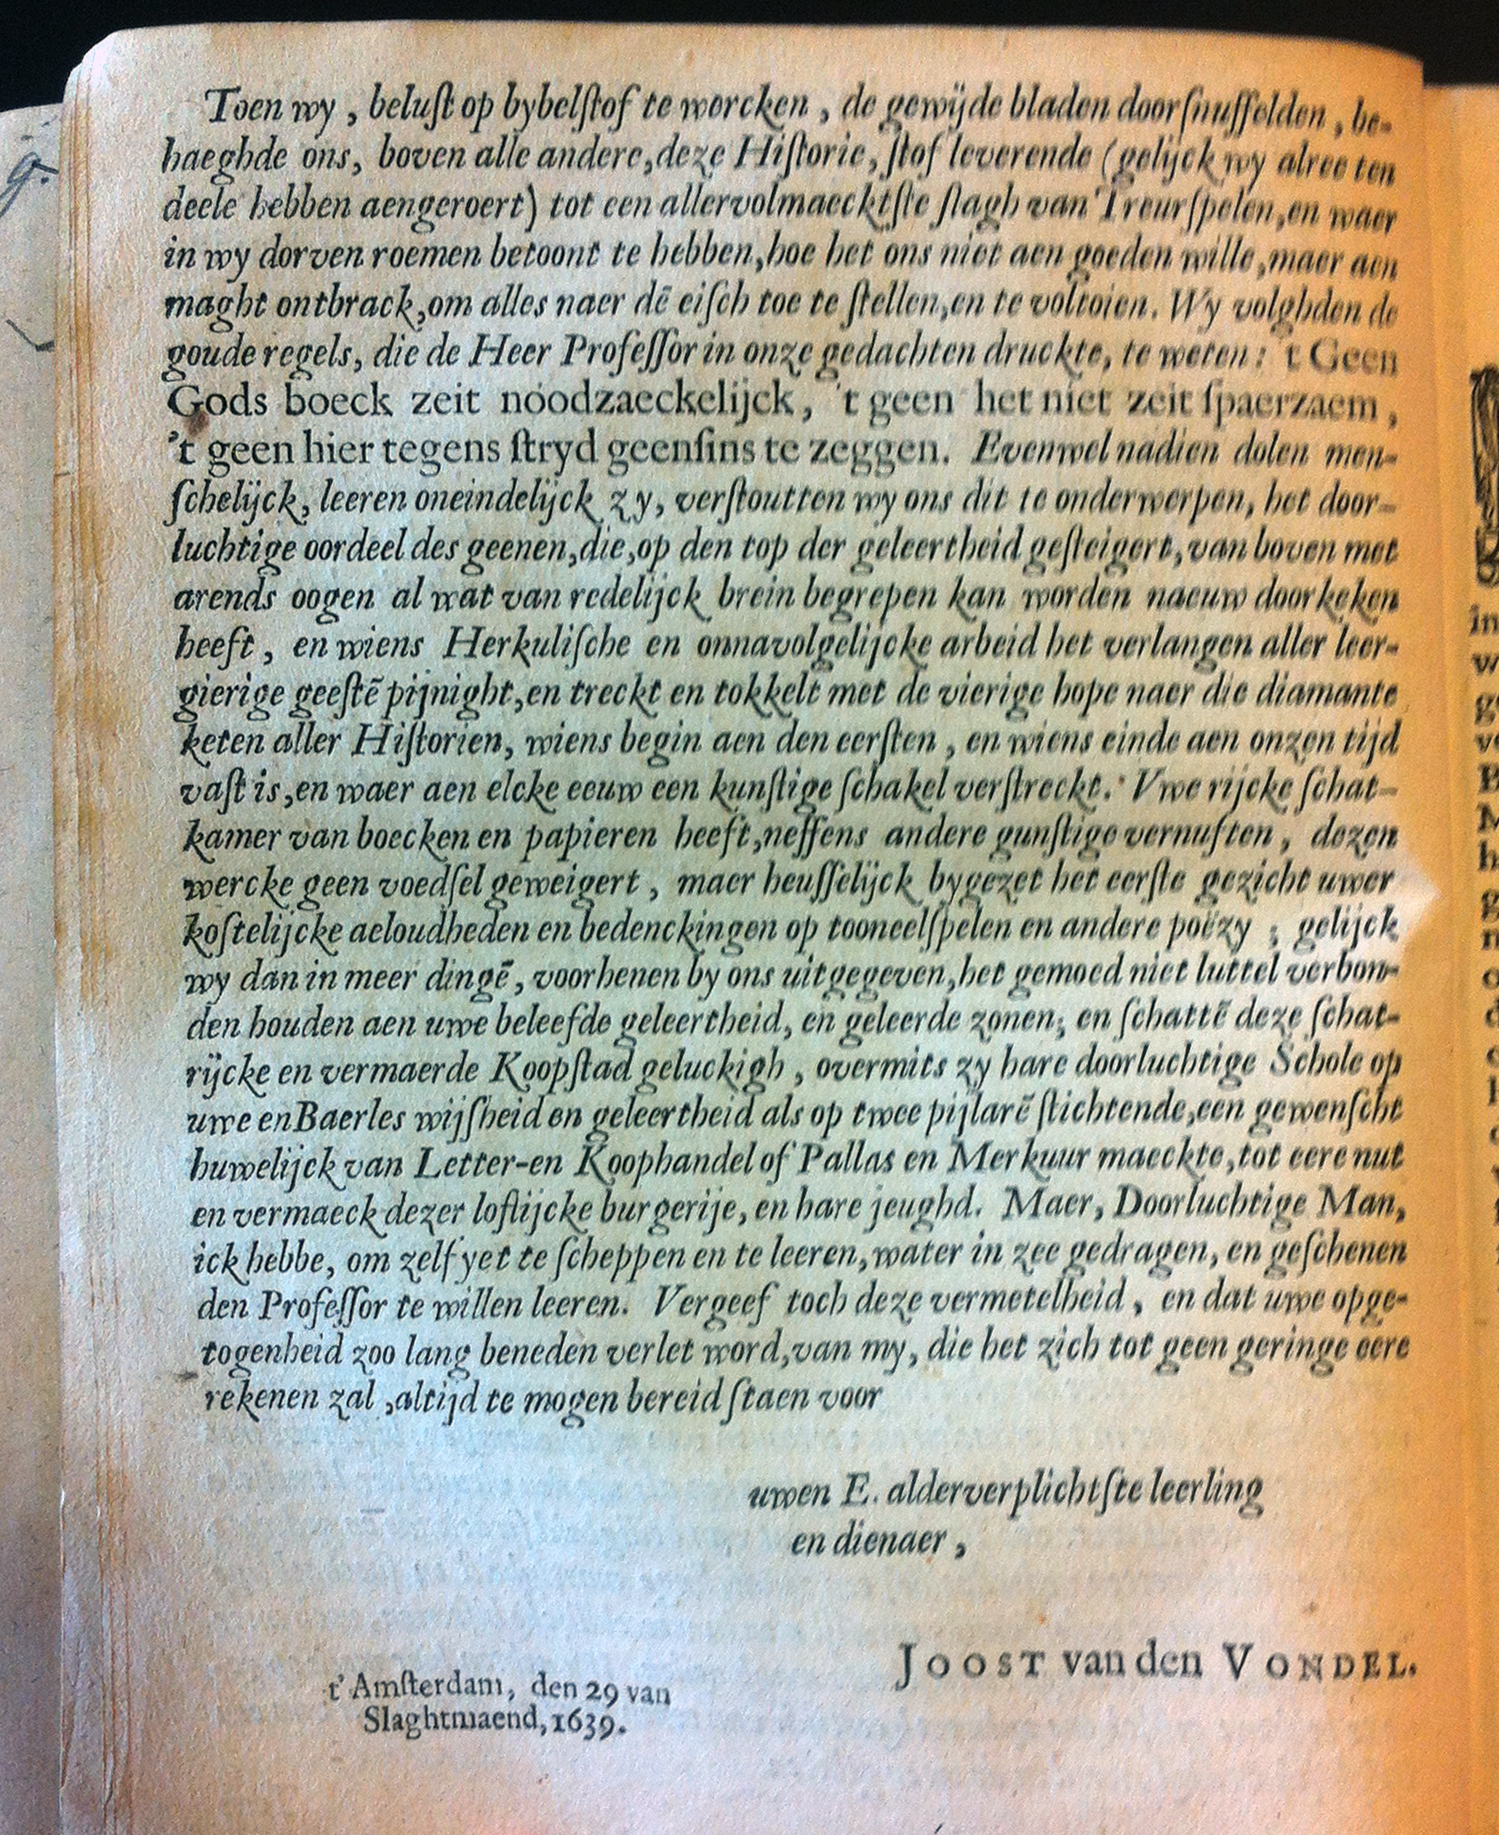 Toen wy, beluſt op bybelſtof te wercken, de gewijde bladen doorſnuffelden, be-
haeghde ons, boven alle andere, deze Hiſtorie, ſtof leverende (gelijck wy alree ten
deele hebben aengeroert) tot een allervolmaecktſte ſlagh van Treurſpelen, en waer
in wy dorven roemen betoont te hebben, hoe het ons niet aen goeden wille, maer aen
maght ontbrack, om alles naer dē eiſch toe te ſtellen, en te voltoien. Wy volghden de
goude regels, die de Heer Profeſſor in onze gedachten druckte, te weten: 't Geen
Gods boeck zeit noodzaeckelijck, 't geen het niet zeit ſpaerzaem,
't geen hier tegens ſtryd geenſins te zeggen. Evenwel nadien dolen men-
ſchelijck, leeren oneindelijck zy, verſtoutten wy ons dit te onderwerpen, het door-
luchtige oordeel des geenen, die, op den top der geleertheid geſteigert, van boven met
arends oogen al wat van redelijck brein begrepen kan worden naeuw doorkeken
heeft, en wiens Herkuliſche en onnavolgelijcke arbeid het verlangen aller leer-
gierige geeſtē pijnight, en treckt en tokkelt met de vierige hope naer die diamante
keten aller Hiſtorien, wiens begin aen den eerſten, en wiens einde aen onzen tijd
vaſt is, en waer aen elcke eeuw een kunſtige ſchakel verſtreckt. Vwe rijcke ſchat-
kamer van boecken en papieren heeft, neffens andere gunſtige vernuften, dezen
wercke geen voedſel geweigert, maer heuſſelijck bygezet het eerſte gezicht uwer
koſtelijcke aeloudheden en bedenckingen op tooneelſpelen en andere poëzy; gelijck
wy dan in meer dingē, voorhenen by ons uitgegeven, het gemoed niet luttel verbon-
den houden aen uwe beleefde geleertheid, en geleerde zonen; en ſchattē deze ſchat-
rijcke en vermaerde Koopſtad geluckigh, overmits zy hare doorluchtige Schole op
uwe en Baerles wijſheid en geleertheid als op twee pijlarē ſtichtende, een gewenſcht
huwelijck van Letter-en Koophandel of Pallas en Merkuur maeckte, tot eere nut
en vermaeck dezer loflijcke burgerije, en hare jeughd. Maer, Doorluchtige Man,
ick hebbe, om zelf yet te ſcheppen en te leeren, water in zee gedragen, en geſchenen
den Profeſſor te willen leeren. Vergeef toch deze vermetelheid, en dat uwe opge-
togenheid zoo lang beneden verlet word, van my, die het zich tot geen geringe eere
rekenen zal, altijd te mogen bereid ſtaen voor
uwen E. alderverplichtſte leerling
en dienaer,
JOOST van den VONDEL.
t' Amſterdam, den 29 van
Slaghtmaend, 1639.